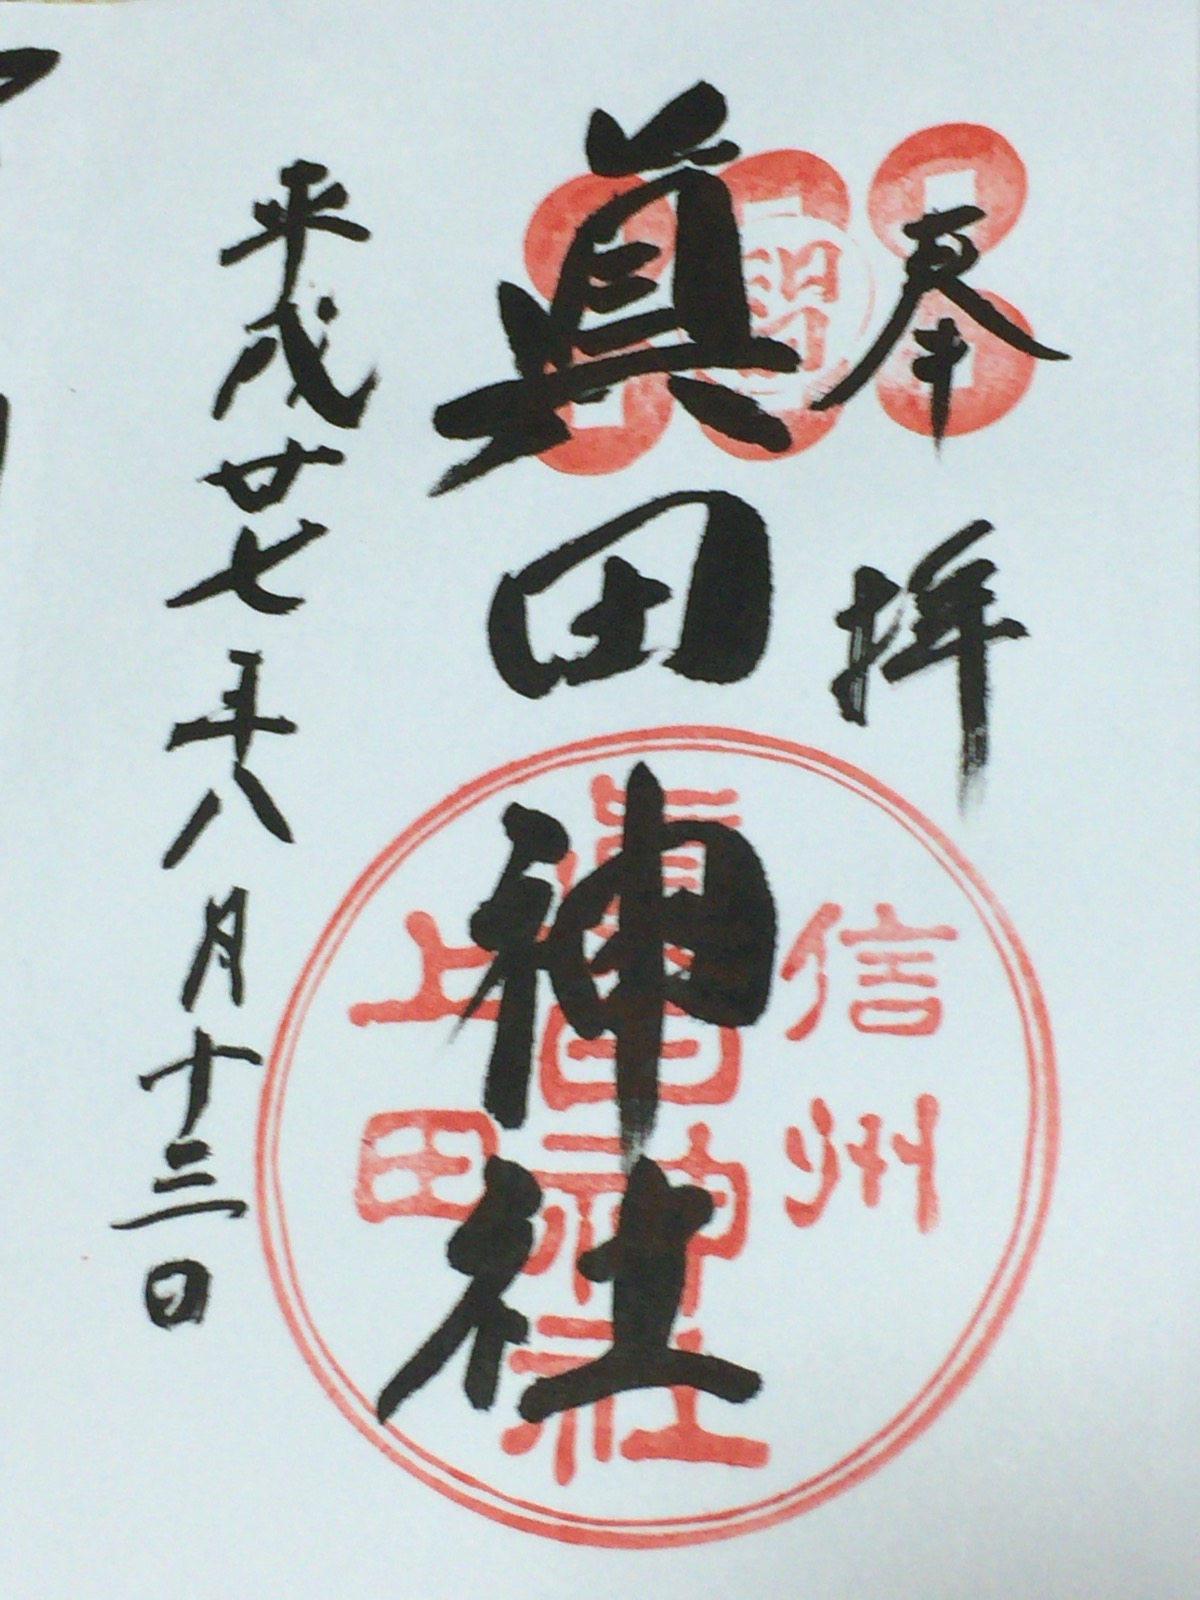 奉拝
眞田神社
信州
眞田神社
上田
平成廿七年八月十三日